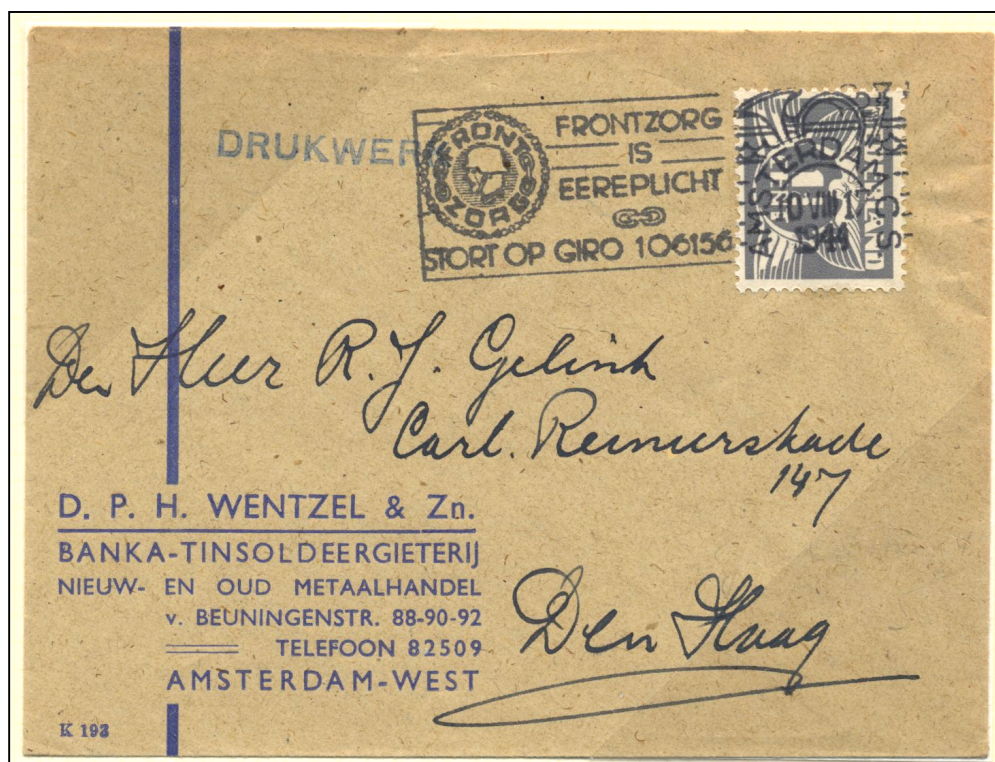 DRUKWER
FRONT
ZORG
FRONTZORG
IS
EEREPLICHT
STORT OP GIRO 106156
AMSTERDAM
10 VIII 1
1944
Den Heer R. J. Gelink
Carl. Reinierskade
147
Den Haag
D. P. H. WENTZEL & Zn.
BANKA-TINSOLDEERGIETERIJ
NIEUW- EN OUD METAALHANDEL
v. BEUNINGENSTR. 88-90-92
TELEFOON 82509
AMSTERDAM-WEST
K 193